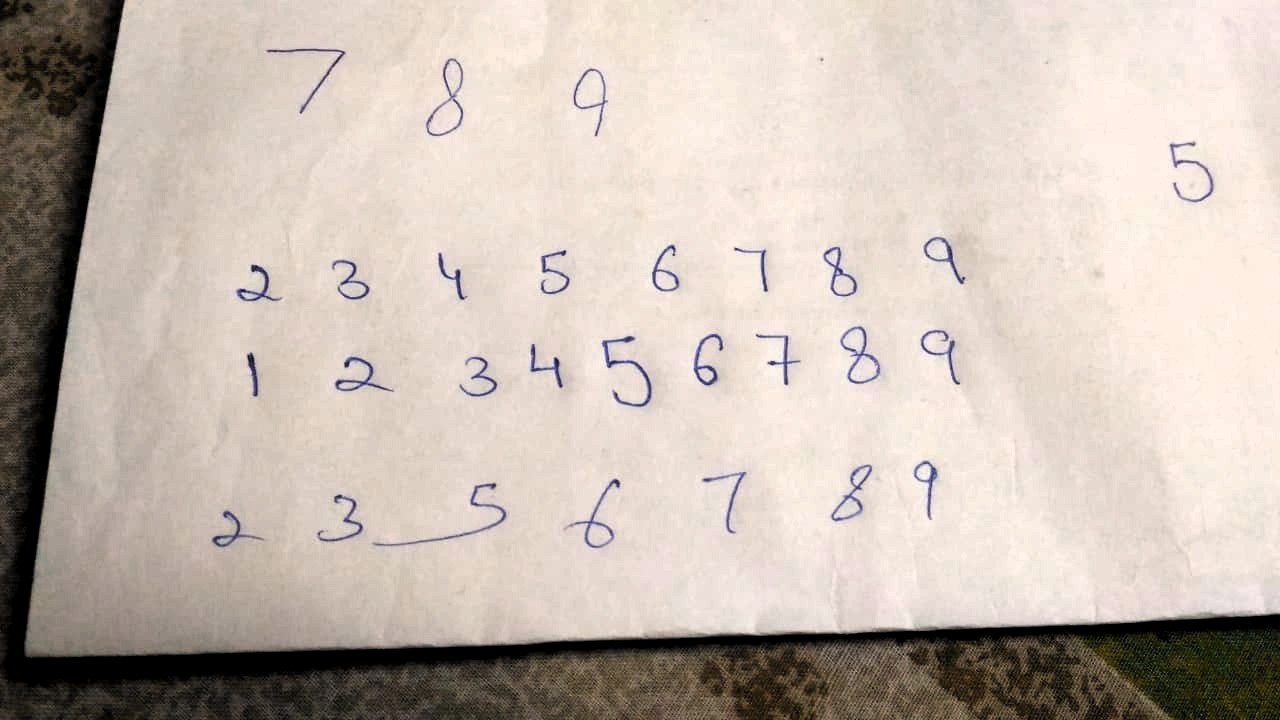 7 8 9
5
2 3 4 5 6 7 8 9
1 2 3 4 5 6 7 8 9
2 3 5 6 7 8 9